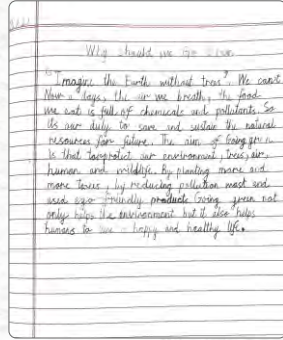 Why should we Go Green
"Imagine the Earth without trees". We cant.
Now a days, the air we breath, the food
we eat is full of chemicals and pollutants. So
its our duty to save and sustain the natural
resources for future. The aim of Going green
is that to protect our environment, trees, air,
human and wildlife. By planting more and
more trees, by reducing pollution most and
used eco friendly products. Going green not
only helps the environment but it also helps
humans to live a happy and healthy life.